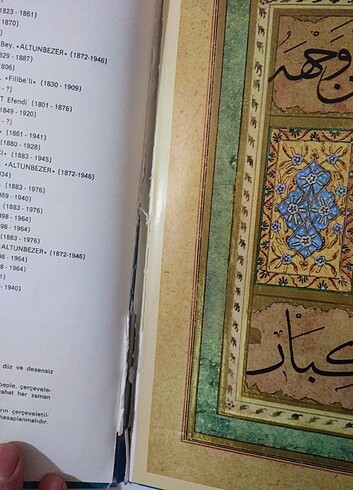 1823 - 1861)
1870)
Bey, «ALTUNBEZER» (1872-1946)
829 - 1887)
806)
, «Filibe'li» (1830 - 1909)
- ?)
T Efendi (1801 - 1876)
1849 - 1920)
- ?)
» (1861 - 1941)
(1880 - 1928)
(1883 - 1945)
«ALTUNBEZER» (1872-1946)
934)
(1883 - 1976)
869 - 1940)
(1883 - 1976)
898 - 1964)
98 - 1964)
(1883 - 1976)
ALTUNBEZER» (1872-1946)
98 - 1964)
98 - 1964)
- 1940)
düz ve desensiz
beple, çerçevele-
rahat her zaman
rın çerçeveletil-
hesaplanmalıdır.
وجهه
كبار